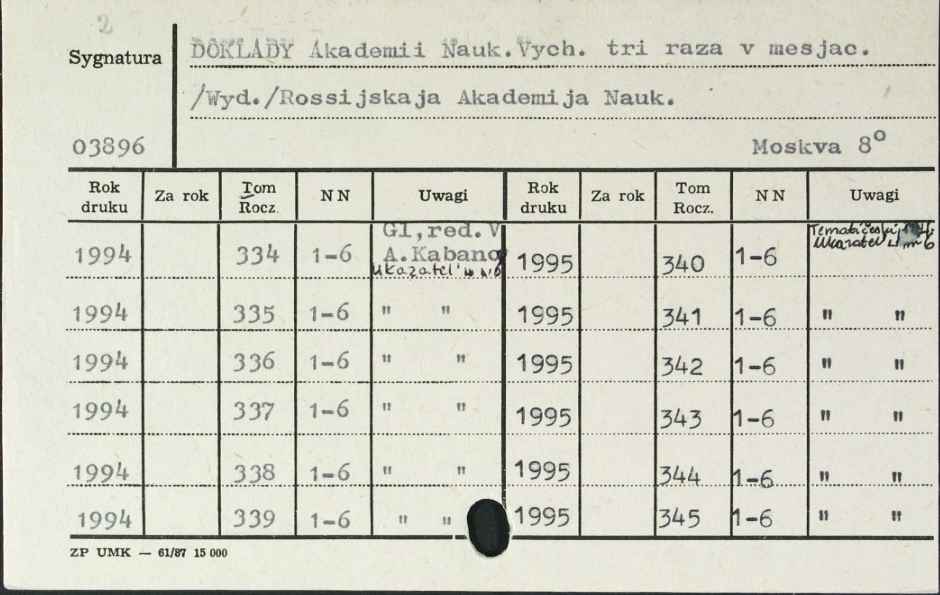 2
Sygnatura DOKLADY Akademii Nauk.Vych. tri raza v mesjac.
/Wyd./Rossijskaja Akademija Nauk.
03896 Moskva 8o
Rok druku Za rok Tom Rocz. NN Uwagi Rok druku Za rok Tom Rocz. NN Uwagi
1994 334 1-6 Gl,red.V A.Kabano Ukazatel' w n 6 1995 340 1-6 Tematičeskij Ukazatel w nr 6
1994 335 1-6 " " 1995 341 1-6 " "
1994 336 1-6 " " 1995 342 1-6 " "
1994 337 1-6 " " 1995 343 1-6 " "
1994 338 1-6 " " 1995 344 1-6 " "
1994 339 1-6 " " 1995 345 1-6 " "
ZP UMK — 61/87 15 000